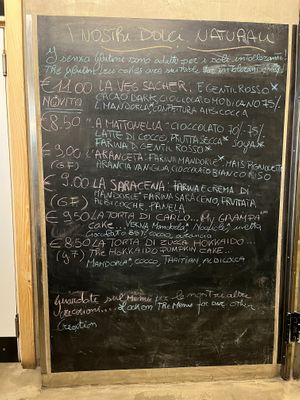 I NOSTRI DOLCI NATURALI
I senza glutine sono adatti per i soli intolleranti
The gluten free cakes are suitable for intolerant only!
€11.00 LA VEG SACHER, E GENTIL ROSSO
NOVITÀ CACAO DARK, CIOCCOLATO MODICANO 75%
MANDORLA CONFETTURA ALBICOCCA
€8.50 LA MATTONELLA: CIOCCOLATO 70/75%
LATTE DI COCCO, FRUTTA SECCA SOYA
FARINA DI GENTIL ROSSO
€9,00 L'ARANCETA: FARINA MANDORLE, MAIS
(GF) ARANCIA VANIGLIA CIOCCOLATO BIANCO RISO
€9.00 LA SARACENA: FARINA E CREMA DI
(GF) MANDORLE FARINA SARACENO, FRULLATA
ALBICOCCHE PANELA
€9,50 LA TORTA DI CARLO... MY GRANPA'
cake...
Cioccolato arancio
€8.50 LA TORTA DI ZUCCA HOKKAIDO...
(gf) THE HOKKAIDO PUMPKIN CAKE...
MANDORLA, COCCO, TAHITIAN, ALBICOCCA
Guardate sul Menu per le nostre altre
creazioni... Look on The Menu for our other
Creation